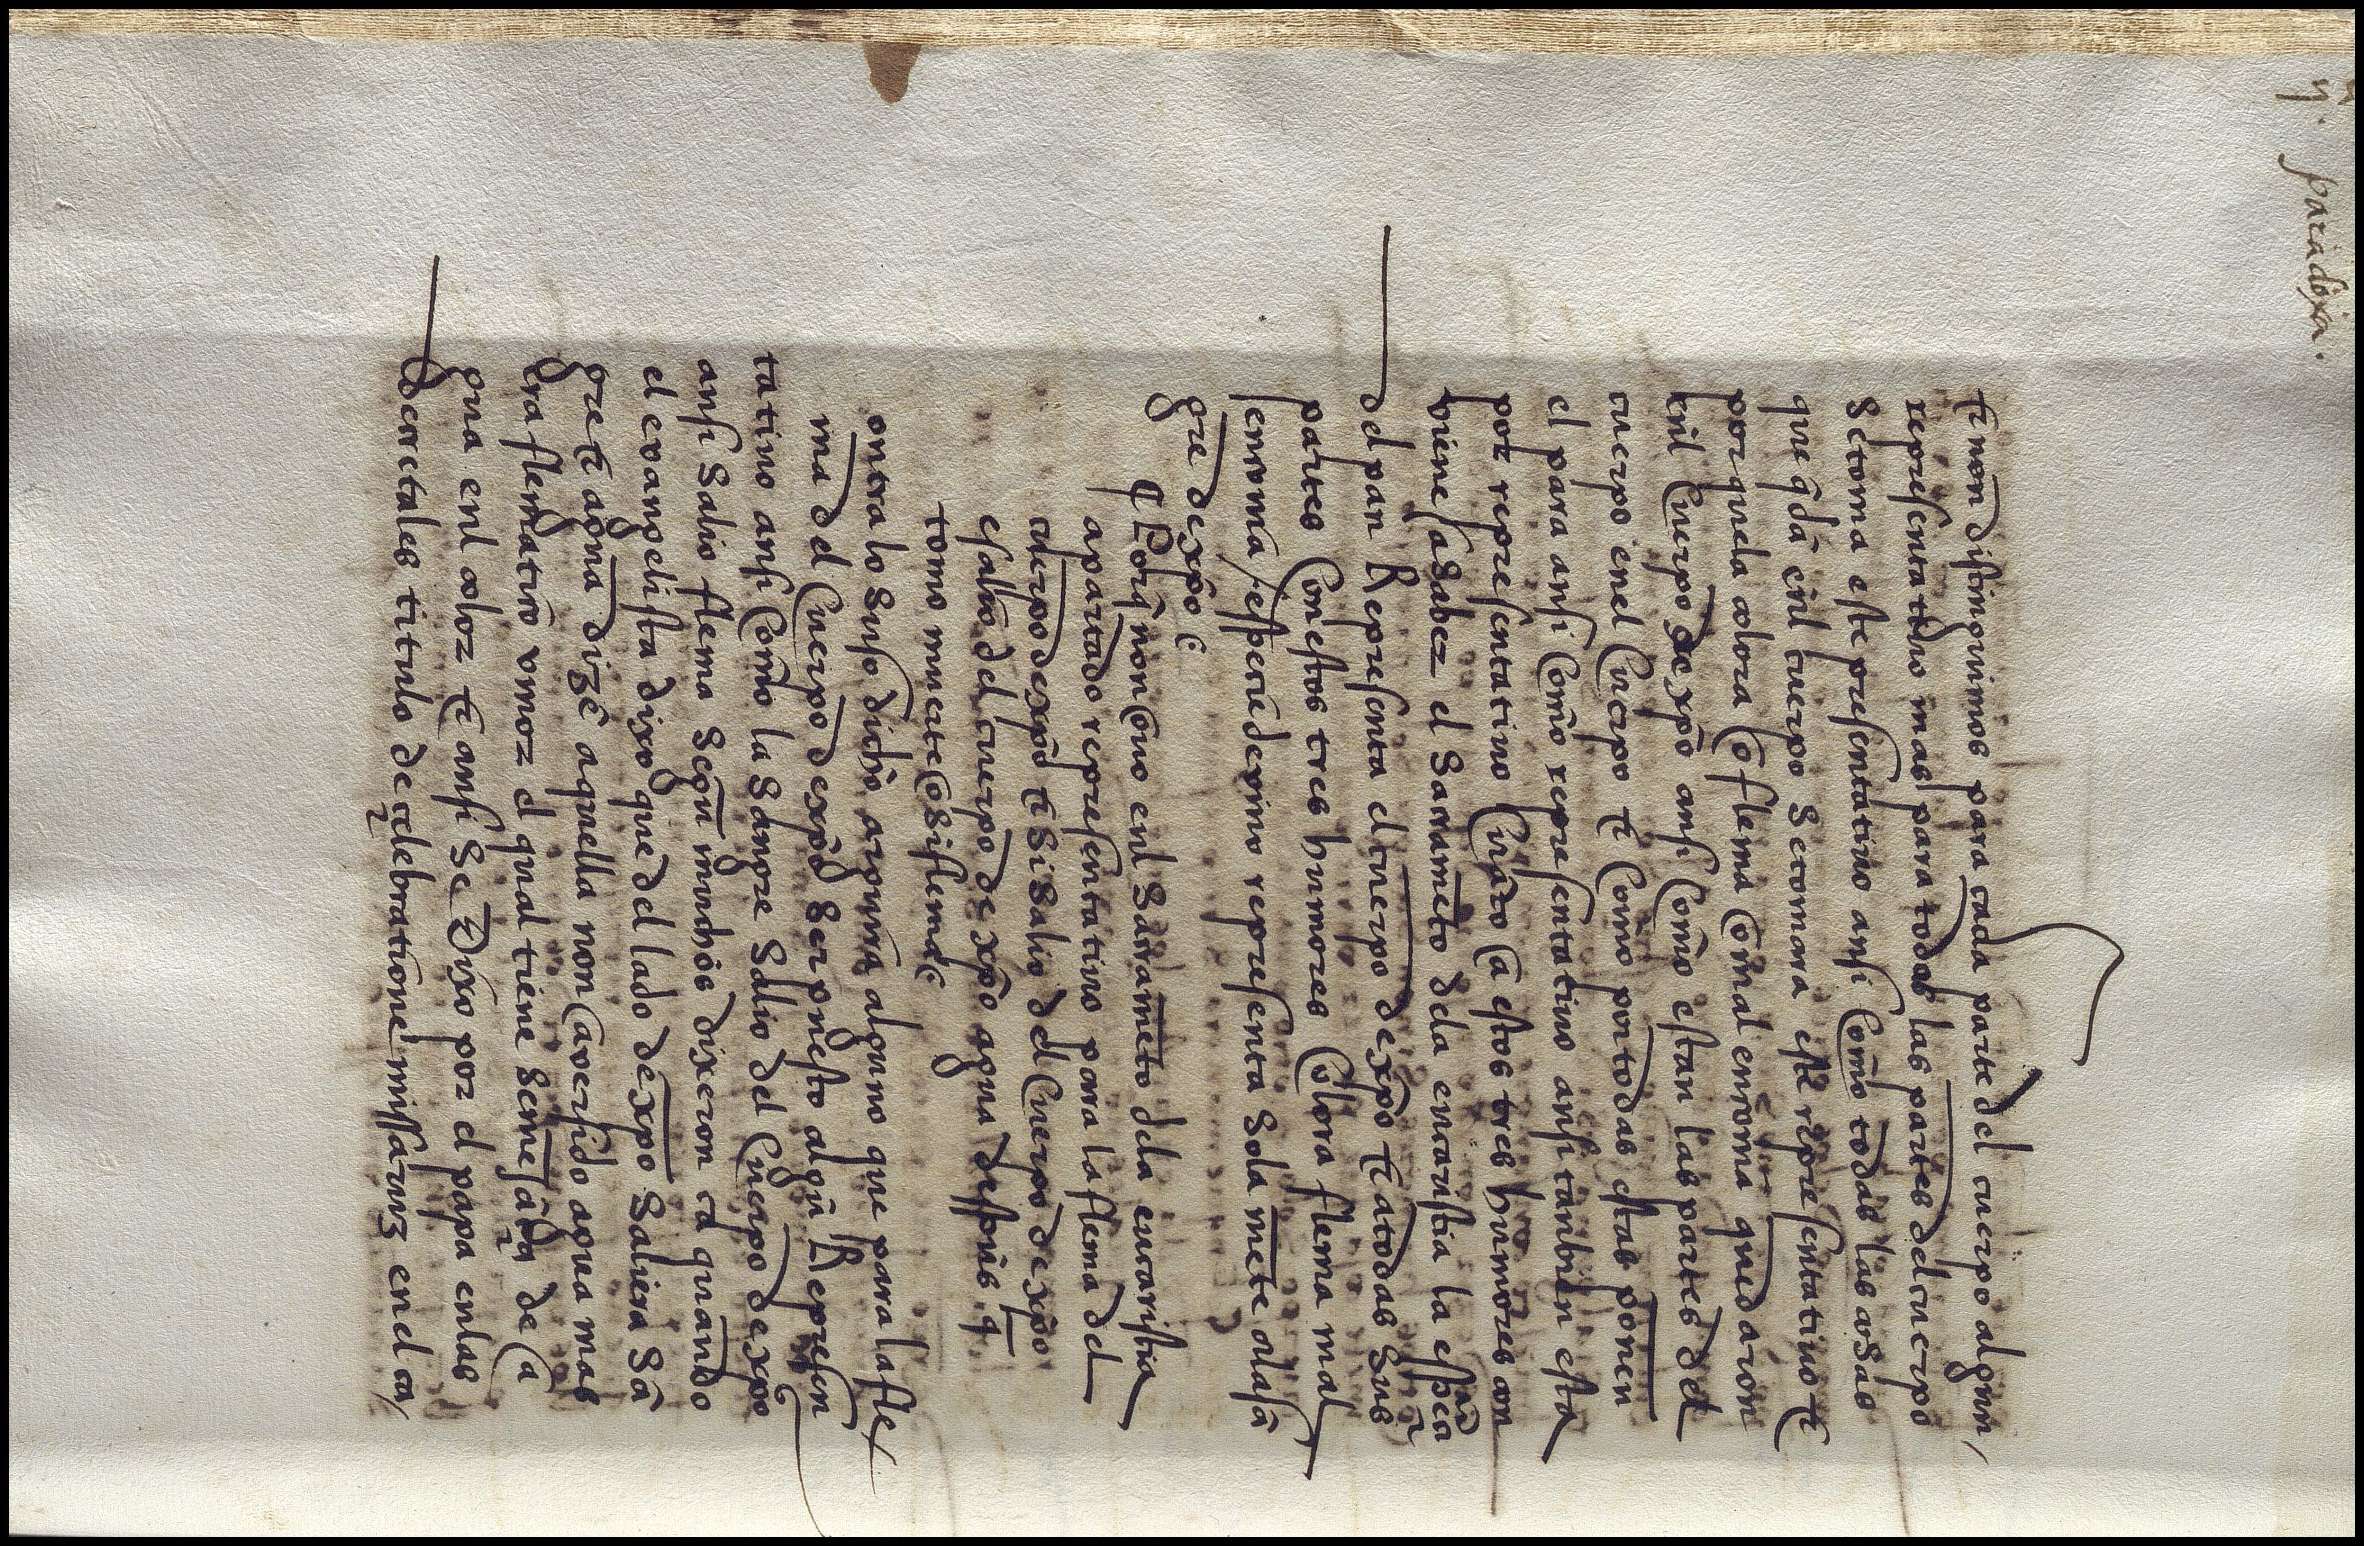 y. paradoxa.
τ non distinguimos para cada parte del cuerpo algun
represẽtatiuo mas para todas las partes del cuerpo
se toma este presentatiuo ansi com̃o todas las cosas
que q̃dã eñl cuerpo se tomara este representatiuo τ
por que la colora cõ flema cõ mal encoma quedaron
enl cuerpo de xp̃o ansi com̃o estan las partes del
cuerpo enel cuerpo τ com̃o por todas estas ponen
el para ansi com̃o representatiuo ansi tanbien esta
por representatiuo ca estos tres humores con
viene a saber el sacramẽto dela eucaristia la espeçia
del pan Representa el cuerpo de xp̃o τ a todas sus
partes con estos tres humores colora flema mal
encoma / espeçie de vino representa sola mẽte ala sã
gre de xp̃o
¶ Porq̃ non ouo enl sacramẽto dela eucaristia
apartado representatiuo para la flema del
cuerpo de xp̃o τ si salio del cuerpo de xp̃o
del cuerpo de xp̃o agua despues q̃
tomo muerte o si flema
ontra lo suso dicho arguira alguno que para la fle
ma del cuerpo de xp̃o ser puesto algũ Represen
tatiuo ansi com̃o la sangre salio del cuerpo de xp̃o
ansi salio flema segũ muchos dixeron ca quando
el evangelista dixo que del lado de xp̃o saliera sã
gre τ agua dizẽ aquella non aver sido agua mas
era flematico vmor el qual tiene semejãça de a
gua enl color τ ansi se dixo por el papa enlas
decretales titulo de celebratione missarum en el ca